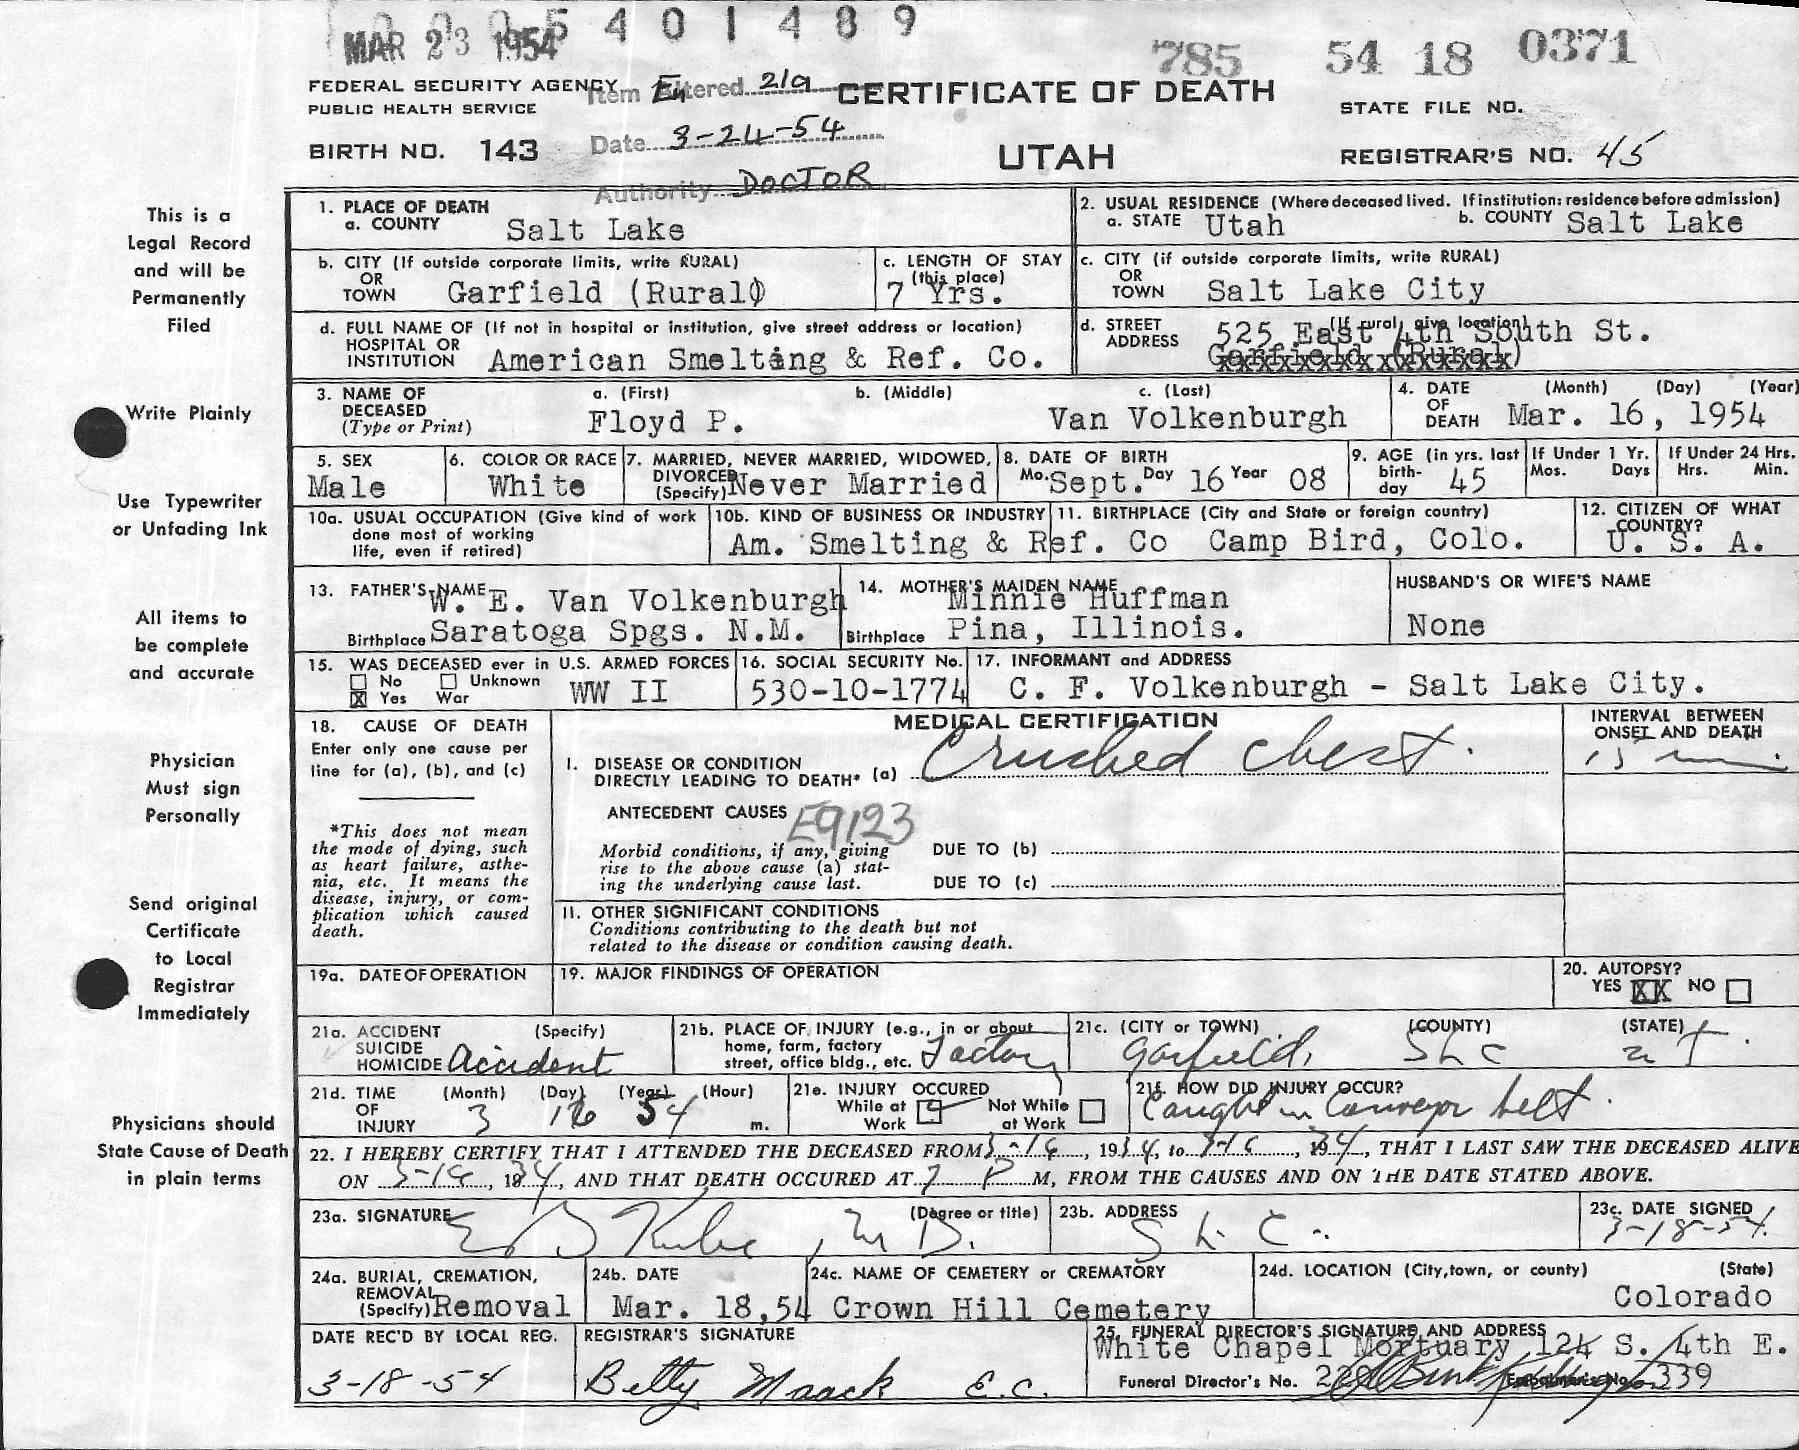 0 0 0 5 4 0 1 4 8 9
MAR 23 1954
785 54 18 0371
FEDERAL SECURITY AGENCY
PUBLIC HEALTH SERVICE
Item Entered 21a
CERTIFICATE OF DEATH
STATE FILE NO.
BIRTH NO. 143
Date 3-24-54
UTAH
REGISTRAR'S NO. 45
Authority DOCTOR
This is a
Legal Record
and will be
Permanently
Filed
Write Plainly
Use Typewriter
or Unfading Ink
All items to
be complete
and accurate
Physician
Must sign
Personally
Send original
Certificate
to Local
Registrar
Immediately
Physicians should
State Cause of Death
in plain terms
1. PLACE OF DEATH
a. COUNTY Salt Lake
2. USUAL RESIDENCE (Where deceased lived. If institution: residence before admission)
a. STATE Utah b. COUNTY Salt Lake
b. CITY (If outside corporate limits, write RURAL)
OR
TOWN Garfield (Rural)
c. LENGTH OF STAY
(this place)
7 Yrs.
c. CITY (if outside corporate limits, write RURAL)
OR
TOWN Salt Lake City
d. FULL NAME OF (If not in hospital or institution, give street address or location)
HOSPITAL OR
INSTITUTION American Smelting & Ref. Co.
d. STREET
ADDRESS (If rural, give location)
525 East 4th South St.
Garfield (Rural)
3. NAME OF
DECEASED
(Type or Print)
a. (First) b. (Middle) c. (Last)
Floyd P. Van Volkenburgh
4. DATE
OF
DEATH
(Month) (Day) (Year)
Mar. 16, 1954
5. SEX
Male
6. COLOR OR RACE
White
7. MARRIED, NEVER MARRIED, WIDOWED,
DIVORCED
(Specify) Never Married
8. DATE OF BIRTH
Mo. Sept. Day 16 Year 08
9. AGE (in yrs. last
birth-
day 45
If Under 1 Yr.
Mos. Days
If Under 24 Hrs.
Hrs. Min.
10a. USUAL OCCUPATION (Give kind of work
done most of working
life, even if retired)
10b. KIND OF BUSINESS OR INDUSTRY
Am. Smelting & Ref. Co
11. BIRTHPLACE (City and State or foreign country)
Camp Bird, Colo.
12. CITIZEN OF WHAT
COUNTRY?
U. S. A.
13. FATHER'S NAME W. E. Van Volkenburgh
Birthplace Saratoga Spgs. N.M.
14. MOTHER'S MAIDEN NAME
Minnie Huffman
Birthplace Pina, Illinois.
HUSBAND'S OR WIFE'S NAME
None
15. WAS DECEASED ever in U.S. ARMED FORCES
No Unknown
X Yes War WW II
16. SOCIAL SECURITY No.
530-10-1774
17. INFORMANT and ADDRESS
C. F. Volkenburgh - Salt Lake City.
18. CAUSE OF DEATH
Enter only one cause per
line for (a), (b), and (c)
*This does not mean
the mode of dying, such
as heart failure, asthe-
nia, etc. It means the
disease, injury, or com-
plication which caused
death.
MEDICAL CERTIFICATION
INTERVAL BETWEEN
ONSET AND DEATH
I. DISEASE OR CONDITION
DIRECTLY LEADING TO DEATH* (a) Crushed chest.
15 min
ANTECEDENT CAUSES E9123
Morbid conditions, if any, giving
rise to the above cause (a) stat-
ing the underlying cause last.
DUE TO (b)
DUE TO (c)
II. OTHER SIGNIFICANT CONDITIONS
Conditions contributing to the death but not
related to the disease or condition causing death.
19a. DATE OF OPERATION
19. MAJOR FINDINGS OF OPERATION
20. AUTOPSY?
YES XX NO
21a. ACCIDENT (Specify)
SUICIDE
HOMICIDE Accident
21b. PLACE OF INJURY (e.g., in or about
home, farm, factory
street, office bldg., etc. Factory
21c. (CITY or TOWN) (COUNTY) (STATE)
Garfield, SLC UT.
21d. TIME
OF
INJURY
(Month) (Day) (Year) (Hour)
3 16 54 m.
21e. INJURY OCCURED
While at
Work
Not While
at Work
21f. HOW DID INJURY OCCUR?
Caught in Conveyor belt.
22. I HEREBY CERTIFY THAT I ATTENDED THE DECEASED FROM 3-16, 1954, to 3-16, 1954, THAT I LAST SAW THE DECEASED ALIVE
ON 3-16, 1954, AND THAT DEATH OCCURED AT 7 P M, FROM THE CAUSES AND ON THE DATE STATED ABOVE.
23a. SIGNATURE (Degree or title)
M D.
23b. ADDRESS
S L C.
23c. DATE SIGNED
3-18-54.
24a. BURIAL, CREMATION,
REMOVAL
(Specify) Removal
24b. DATE
Mar. 18,54
24c. NAME OF CEMETERY or CREMATORY
Crown Hill Cemetery
24d. LOCATION (City, town, or county) (State)
Colorado
DATE REC'D BY LOCAL REG.
3-18-54
REGISTRAR'S SIGNATURE
Betty Maack E.C.
25. FUNERAL DIRECTOR'S SIGNATURE AND ADDRESS
White Chapel Mortuary 124 S. 4th E.
Funeral Director's No. Embalmer's No. 339